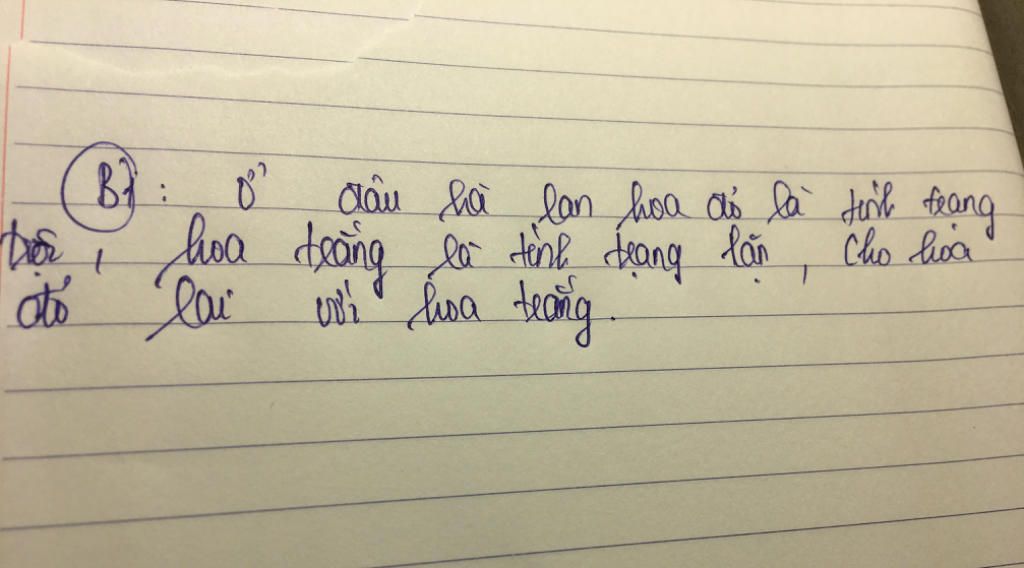 B7: Ở đâu hà lan hoa đỏ là tính trạng
trội, hoa trắng là tính trạng lặn, Cho hoa
đỏ lai với hoa trắng.